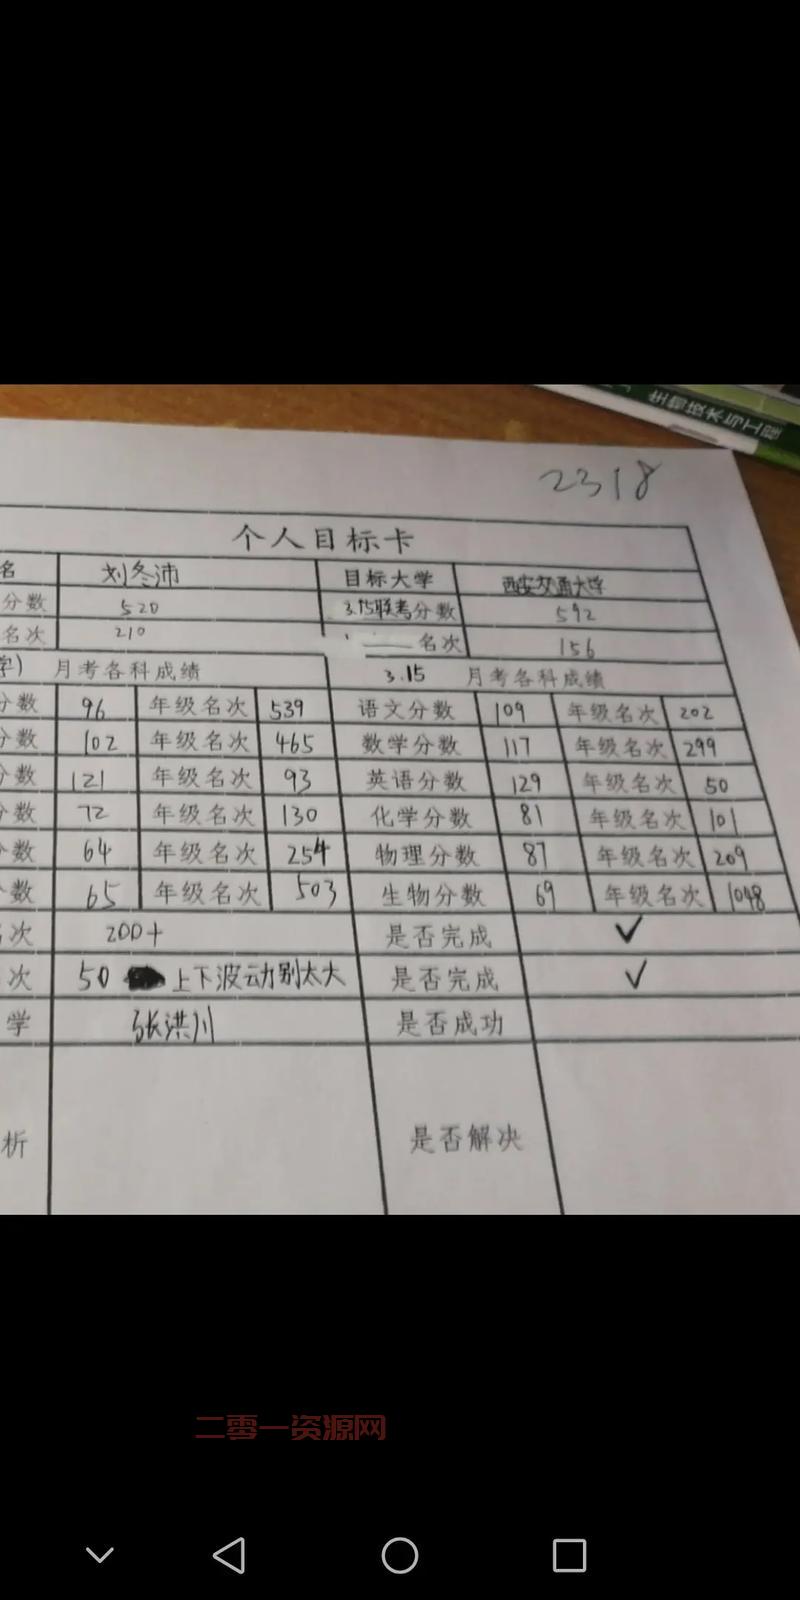 生物技术与工程
2318
个人目标卡
名 刘冬沛 目标大学 西安交通大学
分数 520 3.15联考分数 592
名次 210 名次 156
学) 月考各科成绩 3.15 月考各科成绩
分数 96 年级名次 539 语文分数 109 年级名次 202
分数 102 年级名次 465 数学分数 117 年级名次 299
分数 121 年级名次 93 英语分数 129 年级名次 50
分数 72 年级名次 130 化学分数 81 年级名次 101
分数 64 年级名次 254 物理分数 87 年级名次 209
数 65 年级名次 503 生物分数 69 年级名次 1048
名次 200+ 是否完成 ✓
次 50 上下波动别太大 是否完成 ✓
学 张洪川 是否成功
析 是否解决
二零一资源网